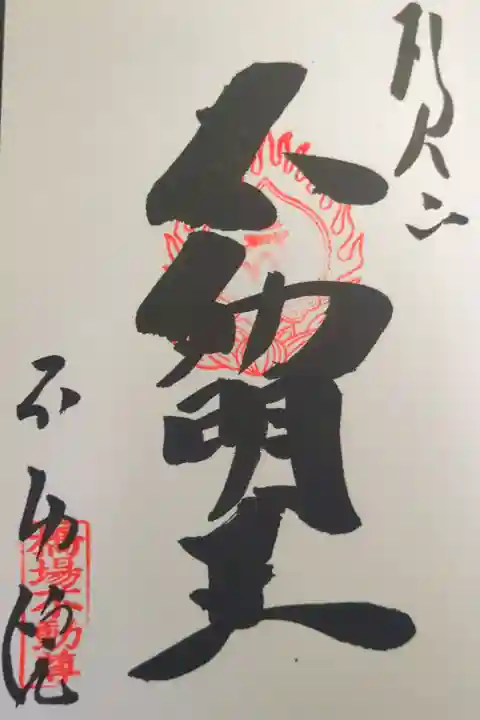 奉拝
不動明王
不動院
橋場不動尊